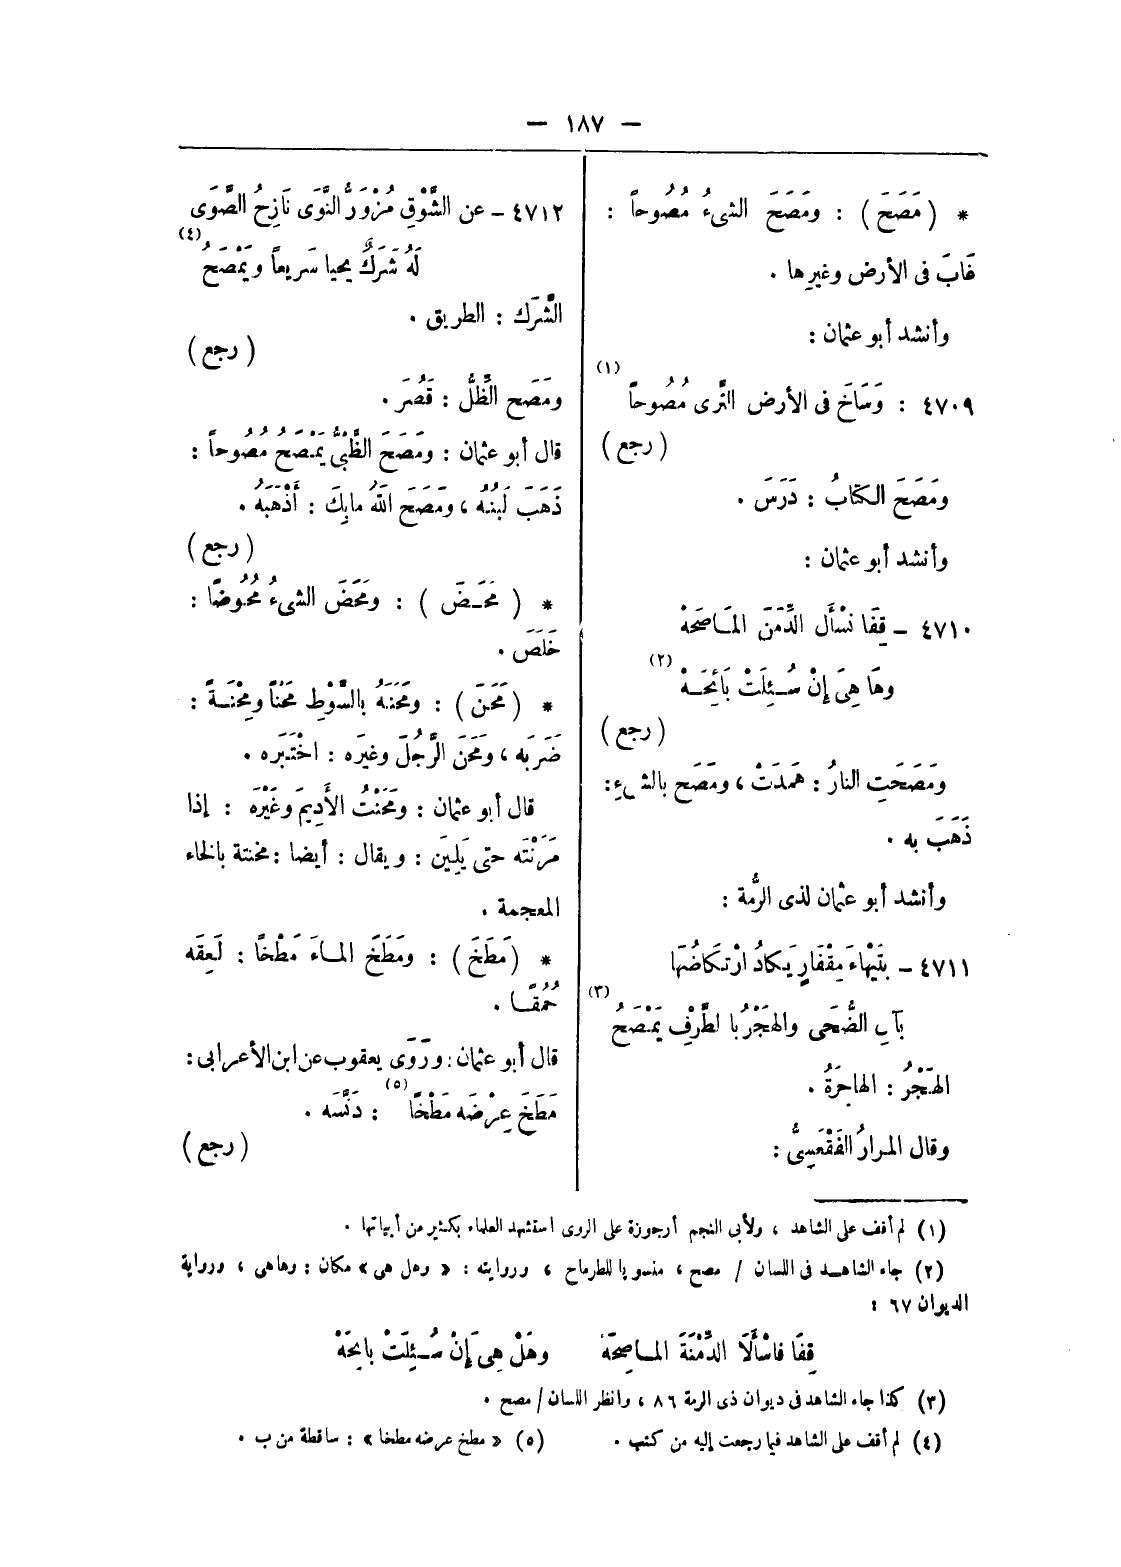 — ١٨٧ —
* ( مَصَحَ ) : ومَصَحَ الشىءُ مُصُوحاً :
غَابَ فى الأرض وغيرِها .
وأنشد أبو عثمان :
٤٧٠٩ : وَسَاخَ فى الأرض الثَّرى مُصُوحاً (١)
( رجع )
ومَصَحَ الكتابُ : دَرَسَ .
وأنشد أبو عثمان :
٤٧١٠ – قِفَا نسْأَل الدِّمَنَ المَاصَحَهْ
وهَا هِىَ إنْ سُئِلَتْ بَائِحَـهْ (٢)
( رجع )
ومَصَحَتِ النارُ : هَمَدَتْ ، ومَصَح بالشىءِ :
ذَهَبَ به .
وأنشد أبو عثمان لذى الرُّمة :
٤٧١١ – بتَيْهَاءَ مِقْفَارٍ يَكادُ ارْتكَاضُهَا
بآلِ الضُّحَى والهَجْرُ با لطَّرْفِ يَمْصَحُ (٣)
الهَجْرُ : الهاجرَةُ .
وقال المرارُ الفَقْعَسِىُّ :
٤٧١٢ – عن الشَّوْقِ مُزْوَرُّ النَّوَى نَازِحُ الصُّوَى
لَهُ شَرَكٌ يحيا سَريعاً ويَمْصَحُ (٤)
الشَّرَك : الطريق .
( رجع )
ومَصَح الظِّلُّ : قَصُرَ .
قال أبو عثمان : ومَصَحَ الظَّبْىُ يَمْصَحُ مُصُوحاً :
ذَهَبَ لَبنُهُ ، ومَصَحَ اللهُ مابِكَ : أَذْهَبَهُ .
( رجع )
* ( مَحَـضَ ) : ومَحَضَ الشىءُ مُحُوضًا :
خَلَصَ .
* ( مَحَنَ ) : ومَحَنَهُ بالسَّوْطِ مَحْنًا ومِحْنَـةً :
ضَرَبَه ، ومَحَنَ الرَّجُلَ وغيرَه : اخْتَبَره .
قال أبو عثمان : ومَحَنْتُ الأَدِيمَ وغَيْرَهَ : إذا
مَرَنْتَه حتى يَلِينَ : ويقال : أيضا : مخنتة بالخاء
المعجمة .
* ( مَطَخَ ) : ومَطَخَ المـاءَ مَطْخًا : لَعِقَه
حُمُقًـا .
قال أبو عثمان : ورَوَى يعقوب عن ابن الأعرابى :
مَطَخَ عِرْضَه مَطْخًا (٥) : دَنَّسَه .
( رجع )
(١) لم أقف على الشاهد ، ولأبى النجم أرجوزة على الروى استشهد العلماء بكثير من أبياتها .
(٢) جاء الشاهـد فى اللسان / مصح ، منسوبا للطرماح ، وروايته : « وهل هى » مكان : وهاهى ، ورواية
الديوان ٦٧ :
قِفَا فاسْأَلَا الدِّمْنَةَ المـاصِحَهْ وهَلْ هِىَ إنْ سُـئِلَتْ بائِحَهْ
(٣) كذا جاء الشاهد فى ديوان ذى الرمة ٨٦ ، وانظر اللسان / مصح .
(٤) لم أقف على الشاهد فيما رجعت إليه من كتب .
(٥) « مطخ عرضه مطخا » : ساقطة من ب .